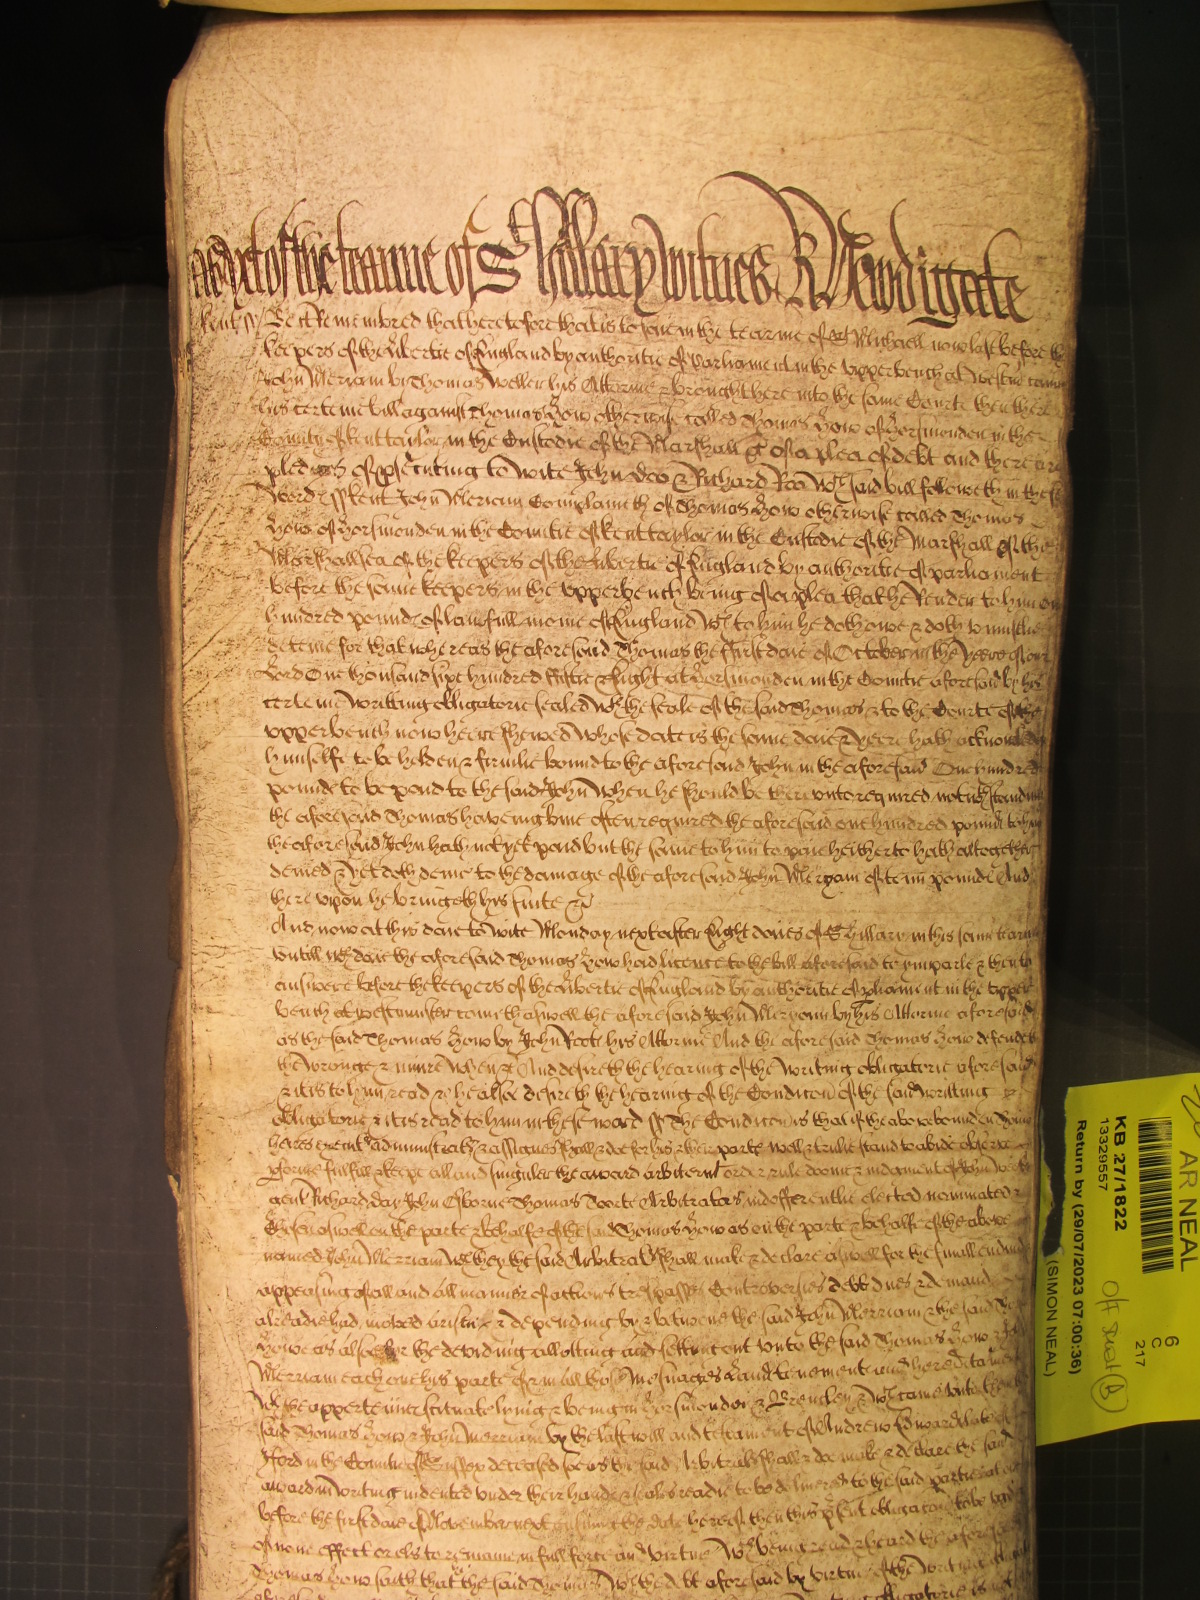 as yet of the tearme of St Hillary witnes R Newdigate
Kent ss Be it Remembred that heretofore that is to saie in the tearme of St Michaell now last before the
keepers of the libertie of England by authoritie of Parliament in the upperbench at Westm came
John Merriam by Thomas Weller his Attorney & brought here into the same Courte then there
his certeine bill against Thomas How otherwise called Thomas How of Horsmonden in the
County of Kent taylor in the Custodie of the Marshall &c of a plea of debt and there are
pledges of prosecuting to wite John Doo & Richard Roo Wch said bill followeth in these
Words ss Kent John Meriam Complaineth of Thomas How otherwise called Thomas
How of Horsmonden in the Comitie of Kent taylor in the Custodie of the Marshall of the
Marshallsea of the keepers of the libertie of England by authoritie of parliament
before the same keepers in the upperbench being of a plea that he Render to him one
hundred pounds of lawfull monie of England wch to him he doth owe & doth uniustlie
deteine for that whereas the aforesaid Thomas the first daie of October in the yeare of our
Lord One thousand six hundred fiftie & Eight at Horsmonden in the Comitie aforesaid by his
certeine writting obligatorie sealed wth the seale of the said Thomas & to the Courte of the
upperbench now heere shewed whose date is the same daie & yeere hath acknowledged
himselfe to be holden & firmlie bound to the aforesaid John in the aforesaid One hundred
pounds to be paid to the said John When he should be thereunto required notwthstanding
the aforesaid Thomas haveing bine often required the aforesaid one hundred pounds to him
the aforesaid John hath not yet paid but the same to him to paie heitherto hath altogether
denied & yet doth denie to the damage of the aforesaid John Meryam of tenn pounds And
there upon he bringeth his suite &c
And now at this daie to wite Monday next after Eight daies of St Hillary in this same tearme
untill wch daie the aforesaid Thomas How had licence to the bill aforesaid to imparle & then to
answere before the keepers of the libertie of England by authoritie of parliament in the upper
bench at westminster cometh aswell the aforesaid John Meryam by his Attorney aforesaid
as the said Thomas How by John Roote his Attorney And the aforesaid Thomas How defendeth
the wronge & iniurie When &c And desireth the hearing of the writing obligatorie aforesaid
& it is to him read &c he alsoe desireth the hearing of the Condicon of the said writting
obligatorie & it is read to him in these words ss The Condicon is that if the above bounden Thomas
heires execut administrats & assignes shall & doe for his & their parts well & trulie stand to abide observe
pforme fullfill & keepe all and singuler the award arbitremt order rule doome & iudgment of John
gent Richard Day John Osborne Thomas Arbitrators indifferentlie elected nominated &
Chosen aswell on the parte & behalfe of the said Thomas How as on the parte & behalfe of the above
named John Merriam wch they the said Arbitrats shall make & declare aswell for the finall ending
appeasing of all and all manner of actions trespasses Controversies debts dues & demands
alreadie had moved arising & depending by & betweene the said John Merriam & the said Tho
How as alsoe for the devidinge allotting and setting out unto the said Thomas How & John
Merriam each one his parte of in all those Mesuages lands tenements and hereditaments
wth the appertenncs scituate lying & being in Horsmonden & Brenchley & wch came unto the
said Thomas How & John Merriam by the last will and testament of Andrew late of
in the Countie of Sussex deceased soe as the said Arbitrats shall & doe make & declare the said
award in writing indented under their hands & seales readie to be delivered to the said parties at or
before the first daie of November next ensuing the date hereof then this psent obligation to be void
of none effect or els to remaine in full force and virtue Wch being read & heard the aforesaid
Thomas How saith that the said Thomas wth the debt aforesaid by virtue of the writing